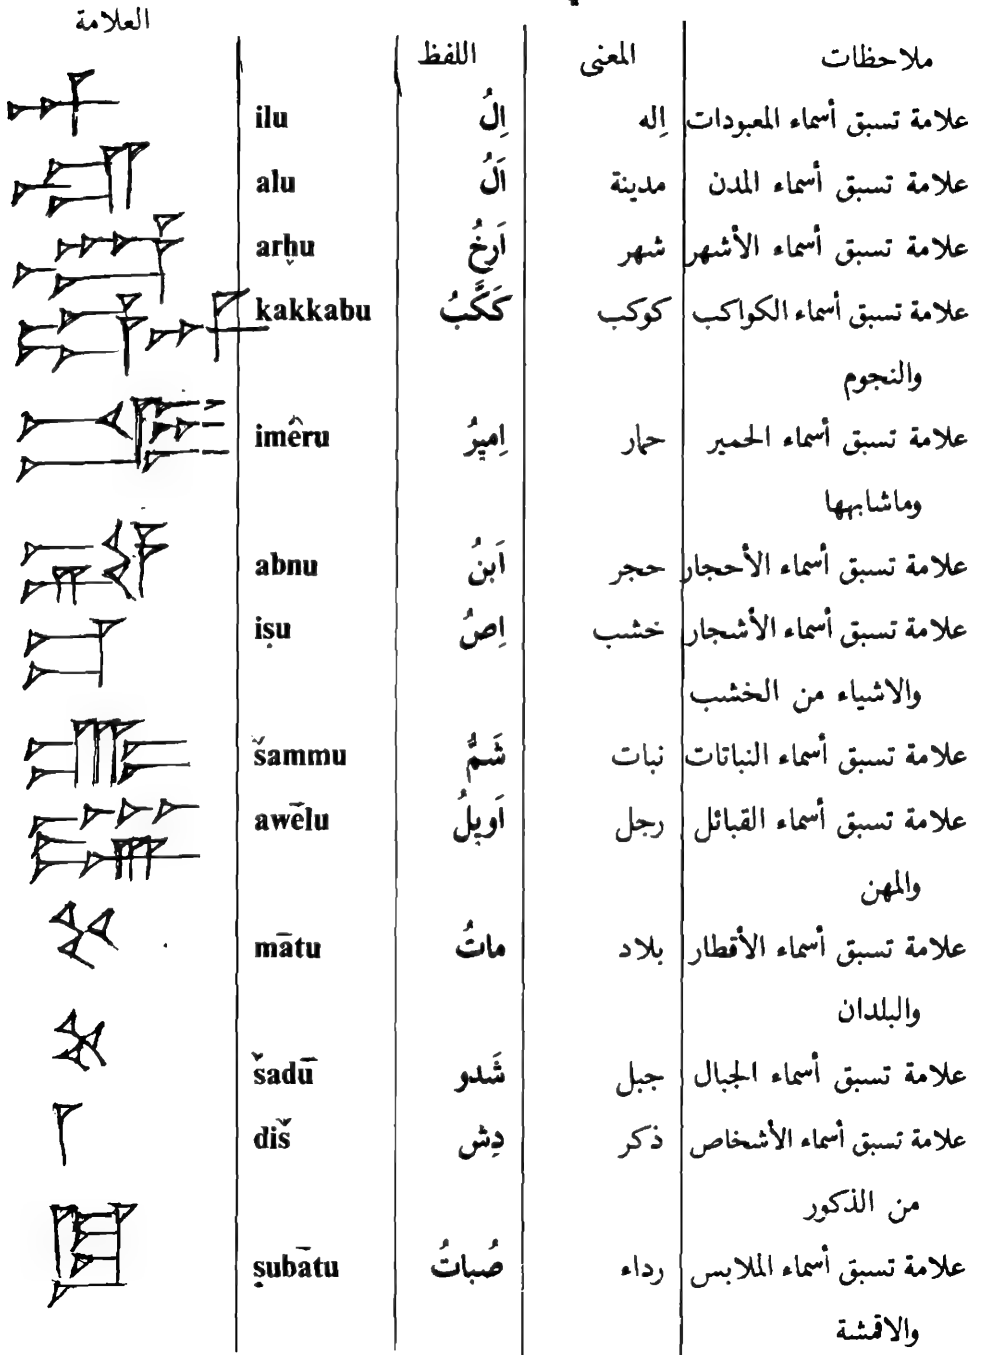 العلامة اللفظ المعنى ملاحظات
ilu اِلُ اِله علامة تسبق أسماء المعبودات
alu اَلُ مدينة علامة تسبق أسماء المدن
arḫu اَرخُ شهر علامة تسبق أسماء الأشهر
kakkabu كَكَّبُ كوكب علامة تسبق أسماء الكواكب
والنجوم
imêru اِميرُ حمار علامة تسبق أسماء الحمير
وماشابهها
abnu اَبنُ حجر علامة تسبق أسماء الأحجار
iṣu اِصُ خشب علامة تسبق أسماء الأشجار
والاشياء من الخشب
šammu شَمُّ نبات علامة تسبق أسماء النباتات
awēlu اَويلُ رجل علامة تسبق أسماء القبائل
والمهن
mātu ماتُ بلاد علامة تسبق أسماء الأقطار
والبلدان
šadū شَدو جبل علامة تسبق أسماء الجبال
diš دِش ذكر علامة تسبق أسماء الأشخاص
من الذكور
ṣubātu صُباتُ رداء علامة تسبق أسماء الملابس
والاقمشة